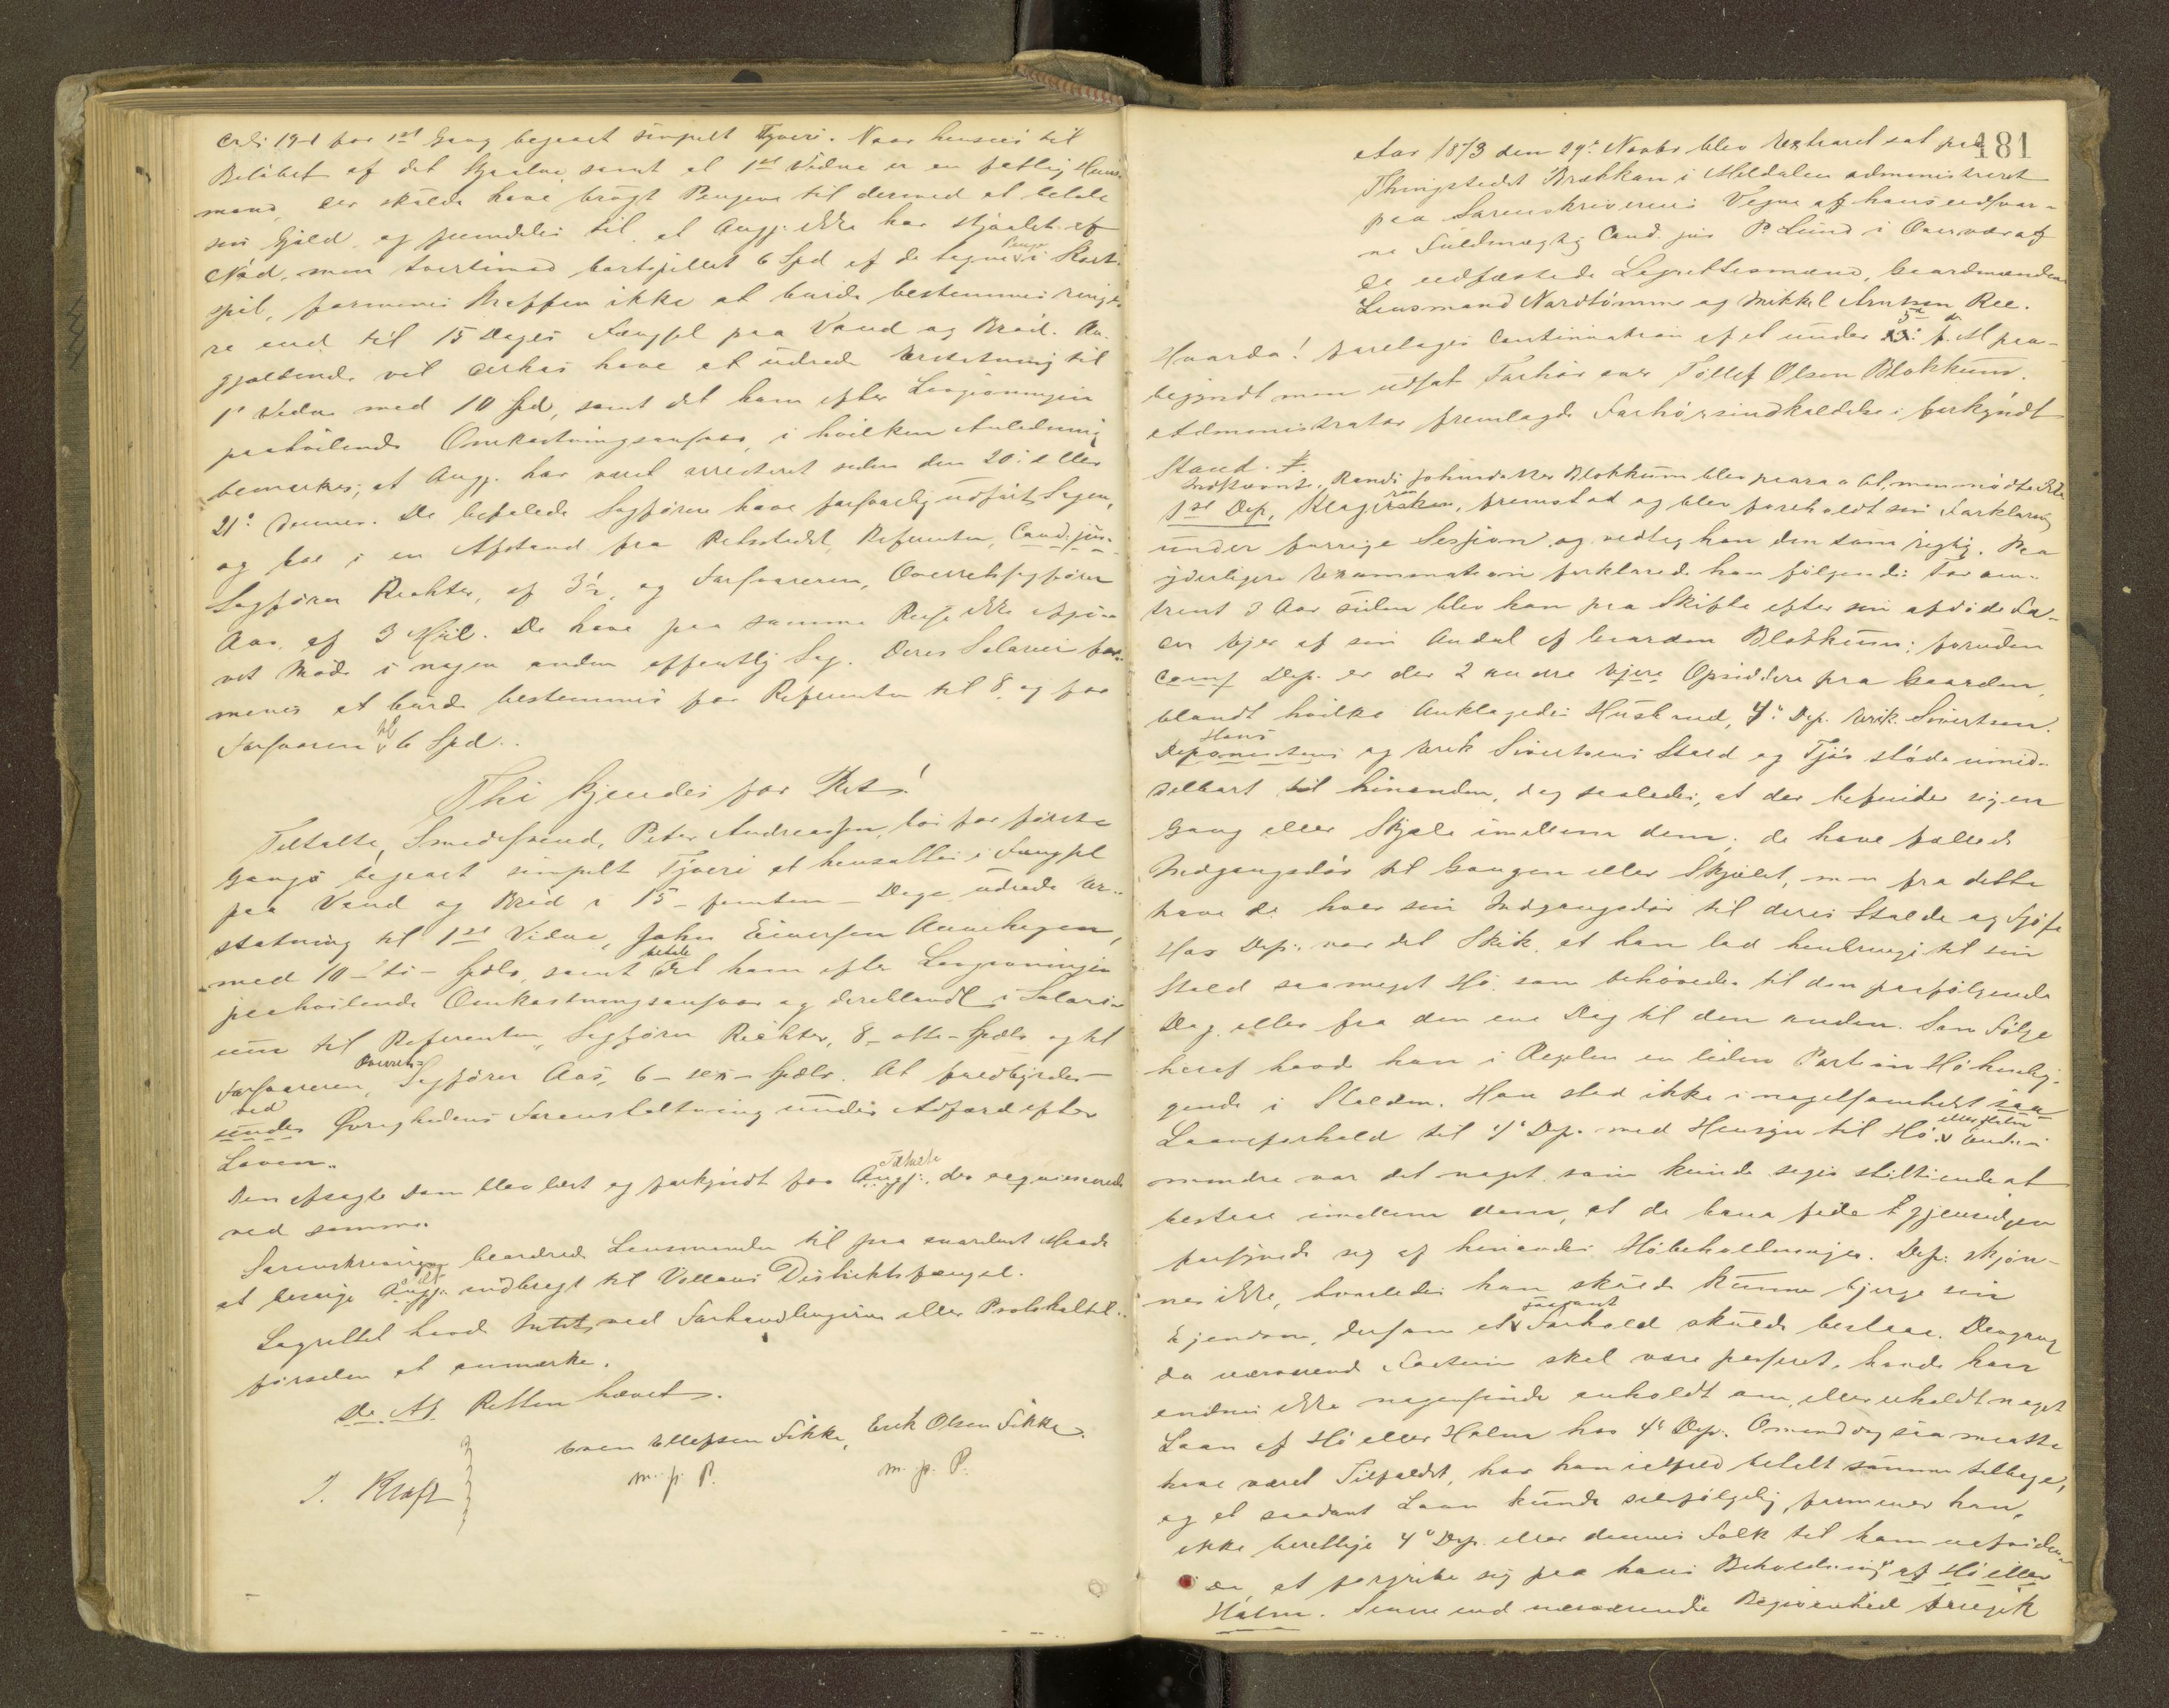 Crls 19-1 for 1st Gang begaaet simpelt Tyveri. Naar hensees til
Beløbet af det Stjaalne, samt at 1st Vidne er en fattig Huus-
mand, der skulde have brugt Pengene til dermed at betale
sin Gjæld, og fremdeles til, at Angj. ikke har stjaalet af
Nød, men tvertimod bortspillet 6 Spd af de tagne Penge i Kort-
spil, formenes Straffen ikke at burde bestemmes ringe-
re end til 15 Dages Fængsel paa Vand og Brød. An-
gjældende vil derhos have at udrede Erstatning til
1' Vidne med 10 Spd, samt det ham efter Lovgivningen
paahvilende Omkostningsansvar, i hvilken Anledning
bemærkes, at Angj. har været arresteret siden den 20' eller
21' dennes. De befalede Sagførere have forsvarlig udført Sagen,
og boe i en Afstand fra Retsstedet, Referenten, Cand. jur.
Sagfører Richter, af 3½, og Forsvareren, Overretssagfører
Aas, af 3 Mil. De have paa samme Reise ikke afgi-
vet Møde i nogen anden offentlig Sag. Deres Salarier for-
menes at burde bestemmes for Referenten til 8, og for
Forsvareren til 6 Spd.
Thi kjendes for Ret!
Tiltalte, Smedesvend, Peter Andreassen, bør for første
Gangs begaaet simpelt Tyveri at hensættes i Fængsel
paa Vand og Brød i 15 - femten - Dage, udrede Er-
statning til 1st Vidne, John Einersen Aunehagen,
med 10 - ti - Spdlr, samt betale det ham efter Lovgivningen
paahvilende Omkostningsansvar og deriblandt i Salari-
um til Referenten, Sagfører Richter, 8 - otte - Spdlr og til
Forsvareren, Overrets Sagfører Aas, 6 - sex - Spdlr. At fuldbyrdes
ved under Øvrighedens Foranstaltning under Adfærd efter
Loven.
Den afsagte Dom blev læst og forkyndt for Angj. Tiltalte, der acqviescerede
ved samme.
Sorenskriveren beordrede Lensmanden til paa snarest Maade
at bringe Angj. Tilt. indbragt til Vollans Distriktsfængsel.
Lagrettet havde Intet ved Forhandlingerne eller Protokoltil-
førselen at anmærke.
Retten hævet.
J. Kraft
Even Ellefsen Sikke, Erik Olsen Sikke
m. p. P. m. p. P.
181
Aar 1873 den 29' Novbr blev Extraret sat paa
Thingstedet Brækkan i Meldalen administreret
paa Sorenskriverens Vegne af hans edsvor-
ne Fuldmægtig Cand. jur P. Lund i Overvær af
de edfæstede Lagrettesmænd, Gaardmændene
Lensmand Nordtømme og Mikkel Arntsen Ree.
Hvorda! foretages Continuation af et under 5' d. M paa-
begyndt men udsat Forhør over Tollef Olsen Blokkum.
Administrator fremlagde Forhørsindkaldelse i forkyndt
Stand.
Indstævnte, Randi Johnsdatter Blokkum blev paaraabt, men mødte ikke
1st Dep, Klageren, fremstod og blev foreholdt sin Forklaring
under forrige Session og vedtog han den som rigtig. Paa
yderligere Examination forklarede han følgende: For om-
trent 3 Aar siden blev han paa Skifte efter sin afdøde Fa-
der Ejer af sin Andel af Gaarden Blokkum; foruden
Comp Dep. er der 2 andre Ejere Opsiddere paa Gaarden,
blandt hvilke Anklagedes Husbond, 4' Dep. Erik Sivertsen.
Hans Deponentens og Erik Sivertsens Stald og Fjøs støde umid-
delbart til hinanden, dog saaledes, at der befinder sig en
Gang eller Skjæle imellem dem; de have fælleds
Indgangsdør til Gangen eller Skjælet, men fra dette
have de hver sin Indgangsdør til deres Stalde og Fjøse
Hos Dep. var det Skik, at han lod henbringe til sin
Stald saameget Hø, som behøvedes til den paafølgende
Dag eller fra den ene Dag til den anden. Som Følge
heraf havde han i Regelen en liden Portion Hø henlig-
gende i Stalden. Han stod ikke i nogetsomhelst saa
Laaneforhold til 4' Dep. med Hensyn til Hø eller Halm. Endnu
mindre var det noget, som kunde siges stiltiende at
bestaae imellem dem, at de bare fede Egjensidgen
forsynede sig af hinandes Høbeholdninger. Dep. skjøn-
ner ikke, hvorledes han skulde kunne bjerge sin
Ejendom, dersom et saadant Forhold skulde bestaae. Dengang
da nærværende Factum skal være passeret, havde han
endnu ikke nogensinde anholdt om, eller erholdt noget
Laan af Hø eller Halm hos 4' Dep. Om end dog saa maatte
have været Tilfældet, har han ialfald betalt samme tilbage,
og et saadant Laan kunde selvfølgelig, formener han,
ikke berettige 4' Dep. eller dennes Folk til ham uafviden-
de, at forgribe sig paa hans Beholdning af Hø eller
Halm. Senere end nærværende Begivenhed foregik